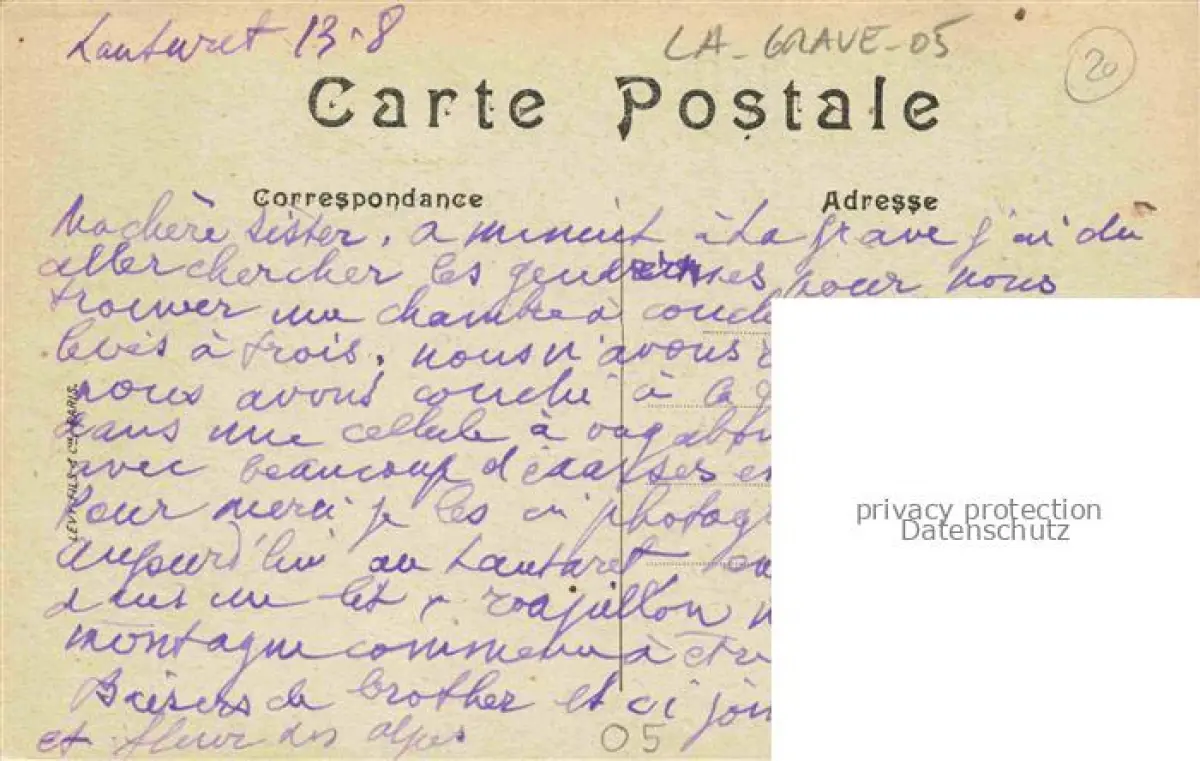 Lautaret 13-8
LA-GRAVE-05
20
Carte Postale
Correspondance
Adresse
Ma chère sister, a minuit à La Grave j'ai du
aller chercher les gendarmes pour nous
trouver une chambre à
levés à trois, nous n'avons
nous avons couché à la
dans une cellule à
avec beaucoup d'
Pour merci je les ai
aujourd'hui au Lautaret
dans un lit
montagne commence à
Baisers de brother et ci
et fleur des alpes
05
LEVY FILS & Cie PARIS.
privacy protection
Datenschutz